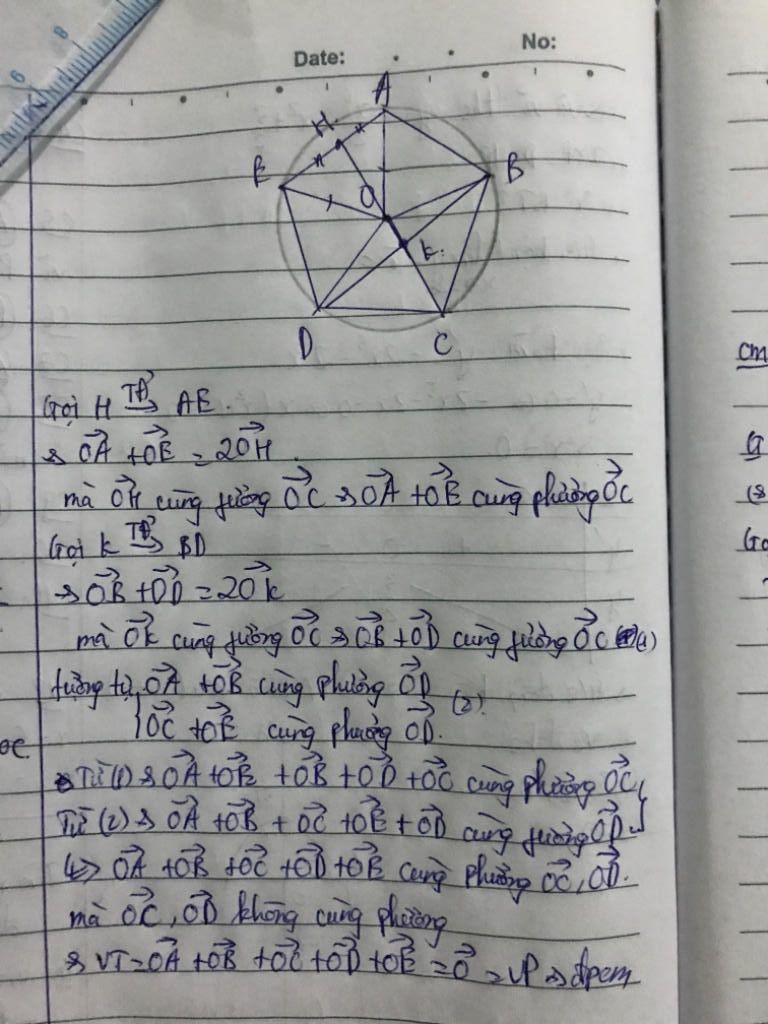 Date:
No:
A
H
E
B
O
K
D
C
Gọi H →TĐ AE.
=> OA→ + OE→ = 2OH→.
mà OH→ cùng phương OC→ => OA→ + OE→ cùng phương OC→
Gọi K →TĐ BD
=> OB→ + OD→ = 2OK→
mà OK→ cùng phương OC→ => OB→ + OD→ cùng phương OC→ (1)
tương tự OA→ + OB→ cùng phương OD→
OC→ + OE→ cùng phương OD→. (2)
Từ (1) => OA→ + OE→ + OB→ + OD→ + OC→ cùng phương OC→
Từ (2) => OA→ + OB→ + OC→ + OE→ + OD→ cùng phương OD→
<=> OA→ + OB→ + OC→ + OD→ + OE→ cùng phương OC→, OD→.
mà OC→, OD→ không cùng phương
=> VT = OA→ + OB→ + OC→ + OD→ + OE→ = 0→ = VP => đpcm